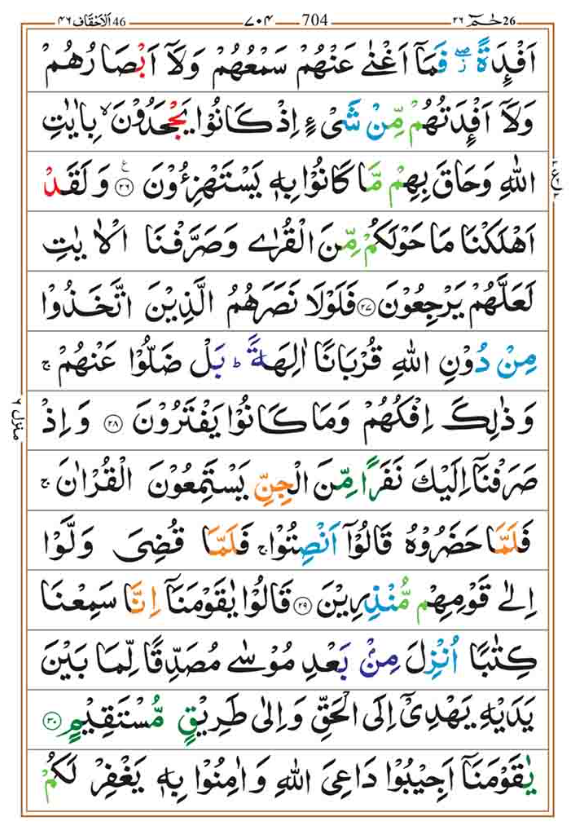 الاحقاف ٤٦ 46 ٧٠٤ 704 حٰمٓ ٢٦ 26
اَفْـِٕدَةً ۖز فَمَاۤ اَغْنٰى عَنْهُمْ سَمْعُهُمْ وَلَاۤ اَبْصَارُهُمْ
وَلَاۤ اَفْـِٕدَتُهُمْ مِّنْ شَىْءٍ اِذْ كَانُوْا يَجْحَدُوْنَ ۙ بِاٰيٰتِ
اللّٰهِ وَحَاقَ بِهِمْ مَّا كَانُوْا بِهٖ يَسْتَهْزِءُوْنَ ۧ ﴿۲۶﴾ وَلَقَدْ
اَهْلَكْنَا مَا حَوْلَكُمْ مِّنَ الْقُرٰى وَصَرَّفْنَا الْاٰيٰتِ
لَعَلَّهُمْ يَرْجِعُوْنَ ﴿۲۷﴾ فَلَوْلَا نَصَرَهُمُ الَّذِيْنَ اتَّخَذُوْا
مِنْ دُوْنِ اللّٰهِ قُرْبَانًا اٰلِهَةً ؕ بَلْ ضَلُّوْا عَنْهُمْ ۚ
وَذٰلِكَ اِفْكُهُمْ وَمَا كَانُوْا يَفْتَرُوْنَ ﴿۲۸﴾ وَاِذْ
صَرَفْنَاۤ اِلَيْكَ نَفَرًا مِّنَ الْجِنِّ يَسْتَمِعُوْنَ الْقُرْاٰنَ ۚ
فَلَمَّا حَضَرُوْهُ قَالُوْۤا اَنْصِتُوْا ۚ فَلَمَّا قُضِىَ وَلَّوْا
اِلٰى قَوْمِهِمْ مُّنْذِرِيْنَ ﴿۲۹﴾ قَالُوْا يٰقَوْمَنَاۤ اِنَّا سَمِعْنَا
كِتٰبًا اُنْزِلَ مِنْۢ بَعْدِ مُوْسٰى مُصَدِّقًا لِّمَا بَيْنَ
يَدَيْهِ يَهْدِىْۤ اِلَى الْحَقِّ وَاِلٰى طَرِيْقٍ مُّسْتَقِيْمٍ ﴿۳۰﴾
يٰقَوْمَنَاۤ اَجِيْبُوْا دَاعِىَ اللّٰهِ وَاٰمِنُوْا بِهٖ يَغْفِرْ لَكُمْ
منزل ٦